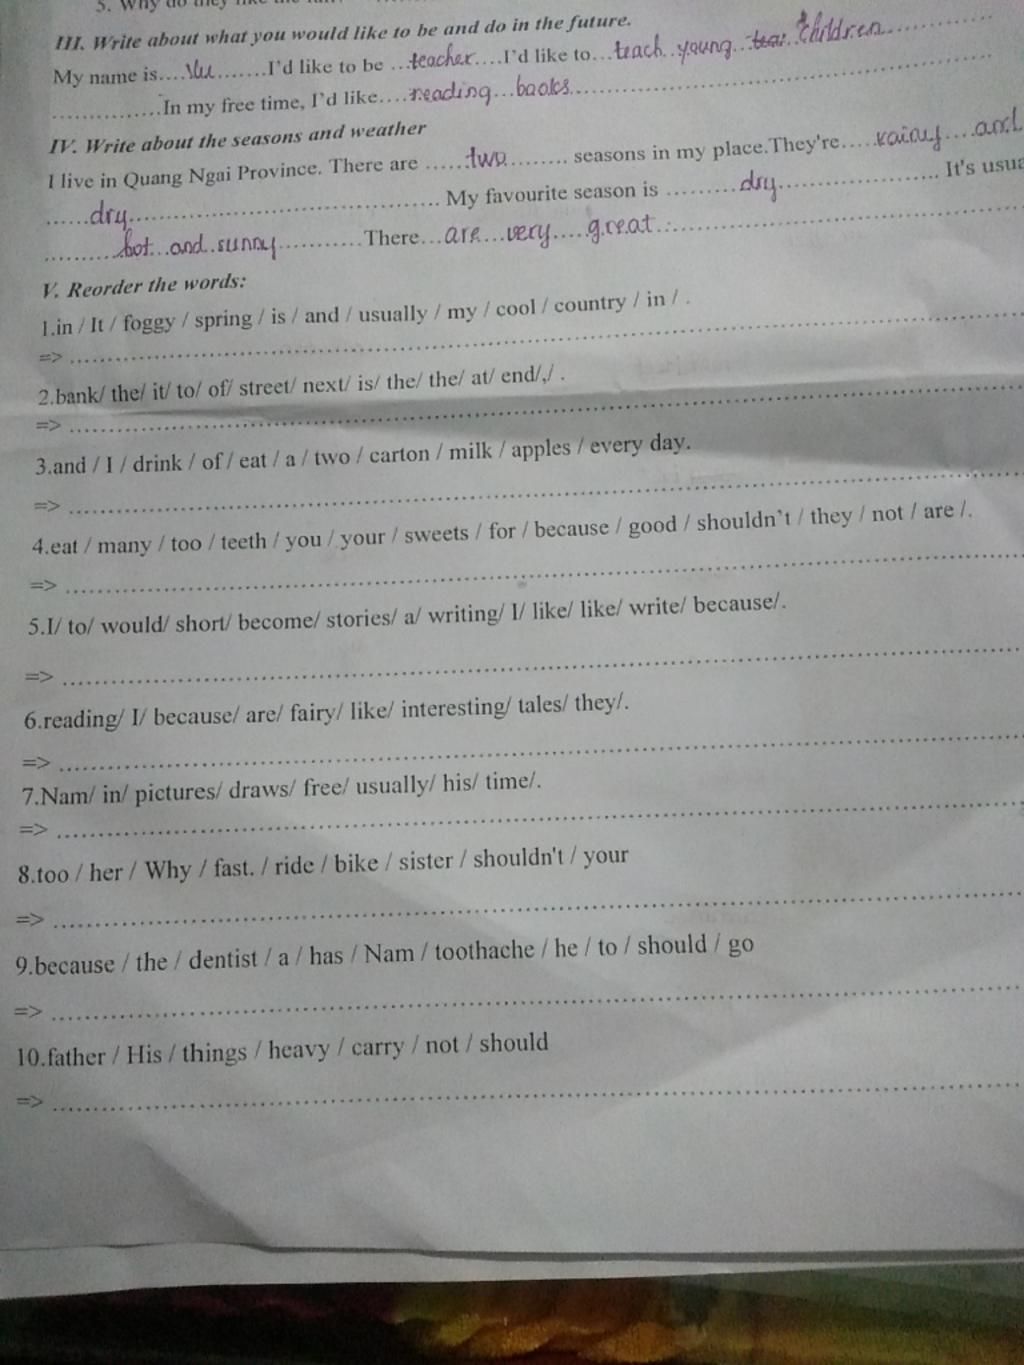 5. Why do they like the
III. Write about what you would like to be and do in the future.
My name is....Vu.......I'd like to be ...teacher....I'd like to...teach..young..tear..children..............
...............In my free time, I'd like....reading...books.......................................................
IV. Write about the seasons and weather
I live in Quang Ngai Province. There are ......two......... seasons in my place.They're.....rainy....and
......dry.......................................... My favourite season is .........dry.................... It's usua
..........hot...and..sunny............There...are...very.....great.............................................
V. Reorder the words:
1.in / It / foggy / spring / is / and / usually / my / cool / country / in / .
=> ..............................................................................................................
2.bank/ the/ it/ to/ of/ street/ next/ is/ the/ the/ at/ end/,/ .
=> ..............................................................................................................
3.and / I / drink / of / eat / a / two / carton / milk / apples / every day.
=> ..............................................................................................................
4.eat / many / too / teeth / you / your / sweets / for / because / good / shouldn't / they / not / are /.
=> ..............................................................................................................
5.I/ to/ would/ short/ become/ stories/ a/ writing/ I/ like/ like/ write/ because/.
=> ..............................................................................................................
6.reading/ I/ because/ are/ fairy/ like/ interesting/ tales/ they/.
=> ..............................................................................................................
7.Nam/ in/ pictures/ draws/ free/ usually/ his/ time/.
=> ..............................................................................................................
8.too / her / Why / fast. / ride / bike / sister / shouldn't / your
=> ..............................................................................................................
9.because / the / dentist / a / has / Nam / toothache / he / to / should / go
=> ..............................................................................................................
10.father / His / things / heavy / carry / not / should
=> ..............................................................................................................